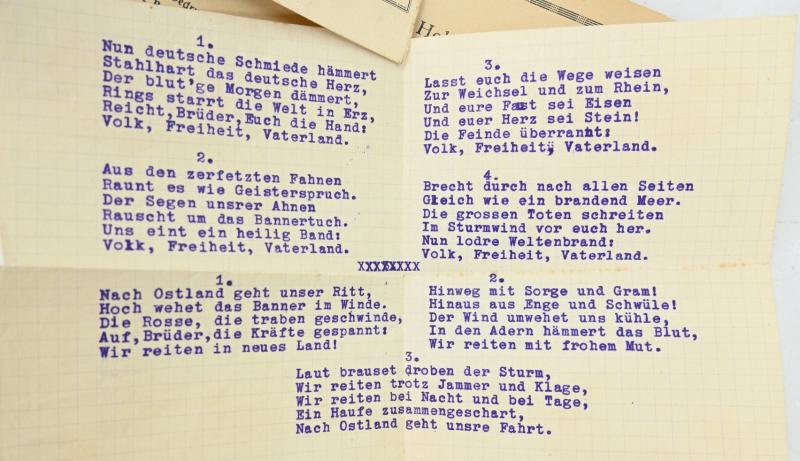 Hol
1.
Nun deutsche Schmiede hämmert
Stahlhart das deutsche Herz,
Der blut'ge Morgen dämmert,
Rings starrt die Welt in Erz,
Reicht,Brüder,Euch die Hand:
Volk, Freiheit, Vaterland.
2.
Aus den zerfetzten Fahnen
Raunt es wie Geisterspruch.
Der Segen unsrer Ahnen
Rauscht um das Bannertuch.
Uns eint ein heilig Band:
Volk, Freiheit, Vaterland.
3.
Lasst euch die Wege weisen
Zur Weichsel und zum Rhein,
Und eure Faust sei Eisen
Und euer Herz sei Stein!
Die Feinde überrannt:
Volk, Freiheit, Vaterland.
4.
Brecht durch nach allen Seiten
Gleich wie ein brandend Meer.
Die grossen Toten schreiten
Im Sturmwind vor euch her.
Nun lodre Weltenbrand:
Volk, Freiheit, Vaterland.
XXXXXXXX
1.
Nach Ostland geht unser Ritt,
Hoch wehet das Banner im Winde.
Die Rosse, die traben geschwinde,
Auf,Brüder,die Kräfte gespannt:
Wir reiten in neues Land!
2.
Hinweg mit Sorge und Gram!
Hinaus aus Enge und Schwüle!
Der Wind umwehet uns kühle,
In den Adern hämmert das Blut,
Wir reiten mit frohem Mut.
3.
Laut brauset droben der Sturm,
Wir reiten trotz Jammer und Klage,
Wir reiten bei Nacht und bei Tage,
Ein Haufe zusammengeschart,
Nach Ostland geht unsre Fahrt.